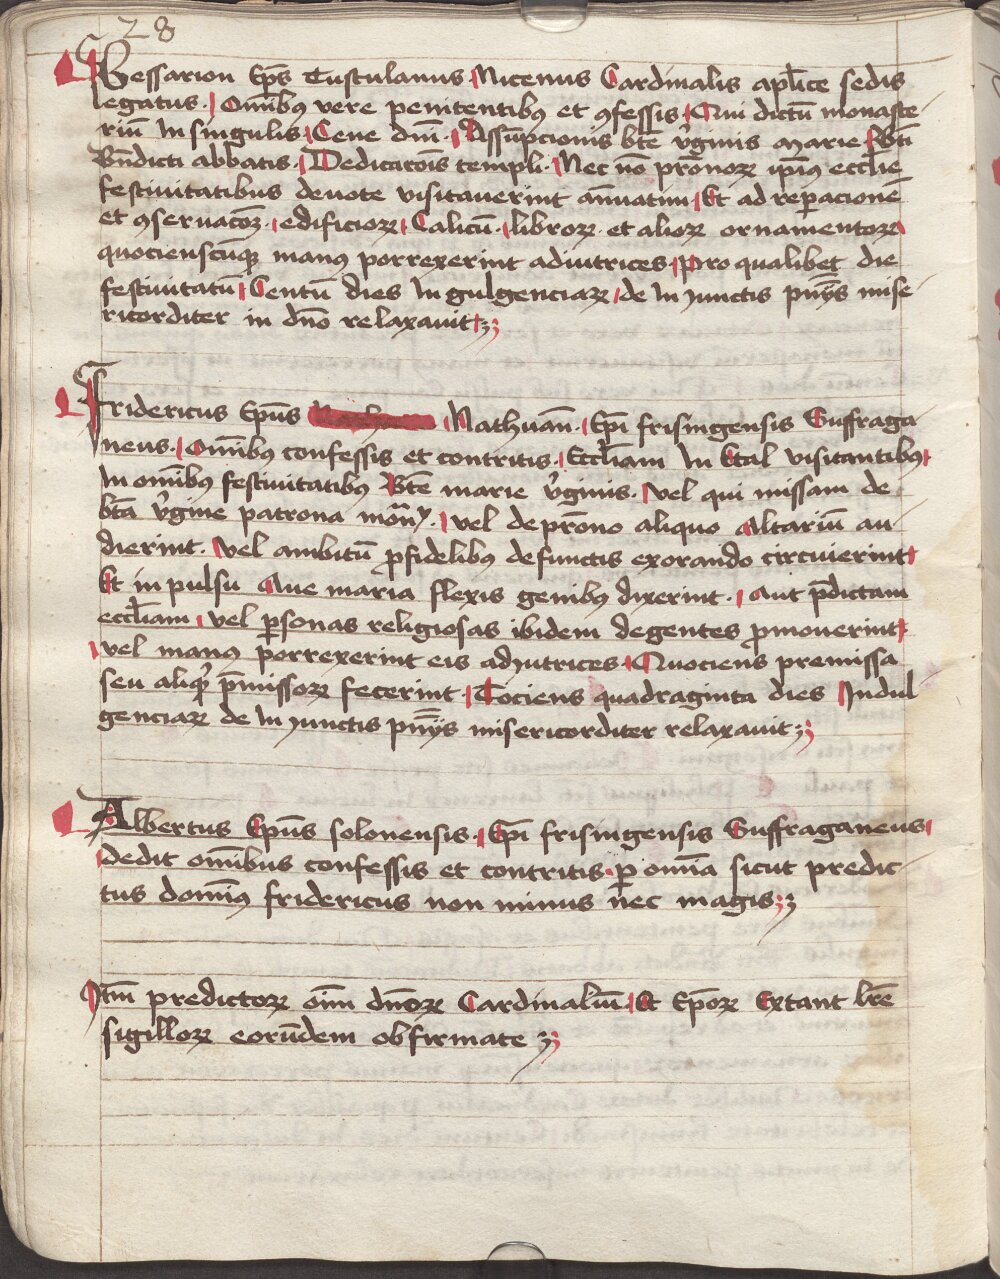 28
Bessarion Ep̄s Tusculanus Nicenus Cardinalis apl̄ice sedis
legatus. Om̄ibꝯ vere penitentibꝯ et ꝯfessis Qui dictū monaste
riū In singulis Cene dn̄i. Assūpcionis bt̄e v̓ginis marie Bt̄i
Bn̄dicti abbatis. Dedicacōis templi. Nec nō pr̄onoꝝ ip̄iꝯ eccl̄ie
festiuitatibus deuote visitauerint an̄uatim Et ad rep̄acionē
et ꝯseruacōꝫ. edificioꝝ Calicū. libroꝝ et alioꝝ ornamentoꝝ
quocienscūqꝫ manꝯ porrexerint adiutrices Pro qualibet die
festiuitatū Centū dies In gulgenciaꝝ de In yunctis pn̄ys mise
ricorditer in dn̄o relaxauit
Fridericus Epūs Nathuān. Ep̄i frisingensis Suffraga
neus. Om̄ibꝯ confessis et contritis. Eccl̄iam In Etal visitantibꝯ
In om̄ibꝯ festiuitatibꝯ Bt̄e marie v̓ginis. Vel qui missam de
bt̄a v̓gine patrona mōn̄y. vel de pr̄ono aliquo Altariū au
dierint. Vel ambitū ꝓfidelibꝯ defunctis exorando circuierint
Et in pulsu Aue maria flexis genibꝯ dixerint. Aut p̄dictam
eccl̄iam vel ꝑsonas religiosas ibidem degentes ꝓmouerint
vel manꝯ porrexerint eis adyutrices Quociens premissa
seu aliqꝫ p̄missoꝝ fecerint Tociens quadraginta dies Indul
genciaꝝ de In yunctis pn̄ys misericorditer relaxauit
Albertus Epūs solonensis. Ep̄i frisingensis Suffraganeus
dedit om̄ibus confessis et contritis ꝑ om̄ia sicut predic
tus domīꝯ fridericus non minus nec magis
Itm̄ predictoꝝ oīm dn̄oꝝ Cardinaliū Et Ep̄oꝝ Extant lr̄e
sigilloꝝ eorūdem obfirmate